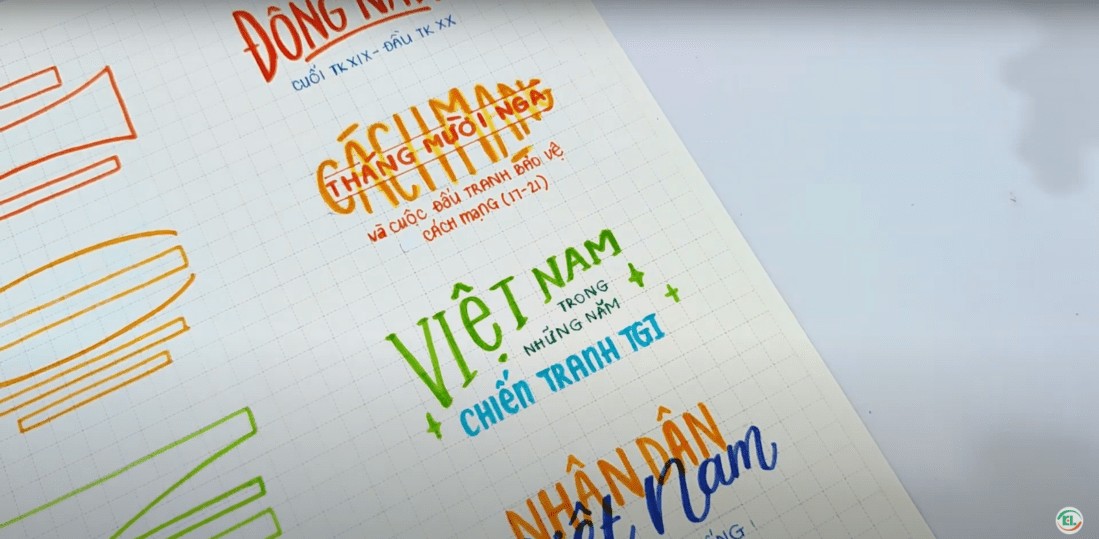 ĐÔNG
CUỐI TK XIX - ĐẦU TK XX
CÁCH MẠNG
THÁNG MƯỜI NGA
và CUỘC ĐẤU TRANH BẢO VỆ
CÁCH MẠNG (17-21)
VIỆT NAM
TRONG
NHỮNG NĂM
CHIẾN TRANH TGI
NHÂN DÂN
Nam
TEL